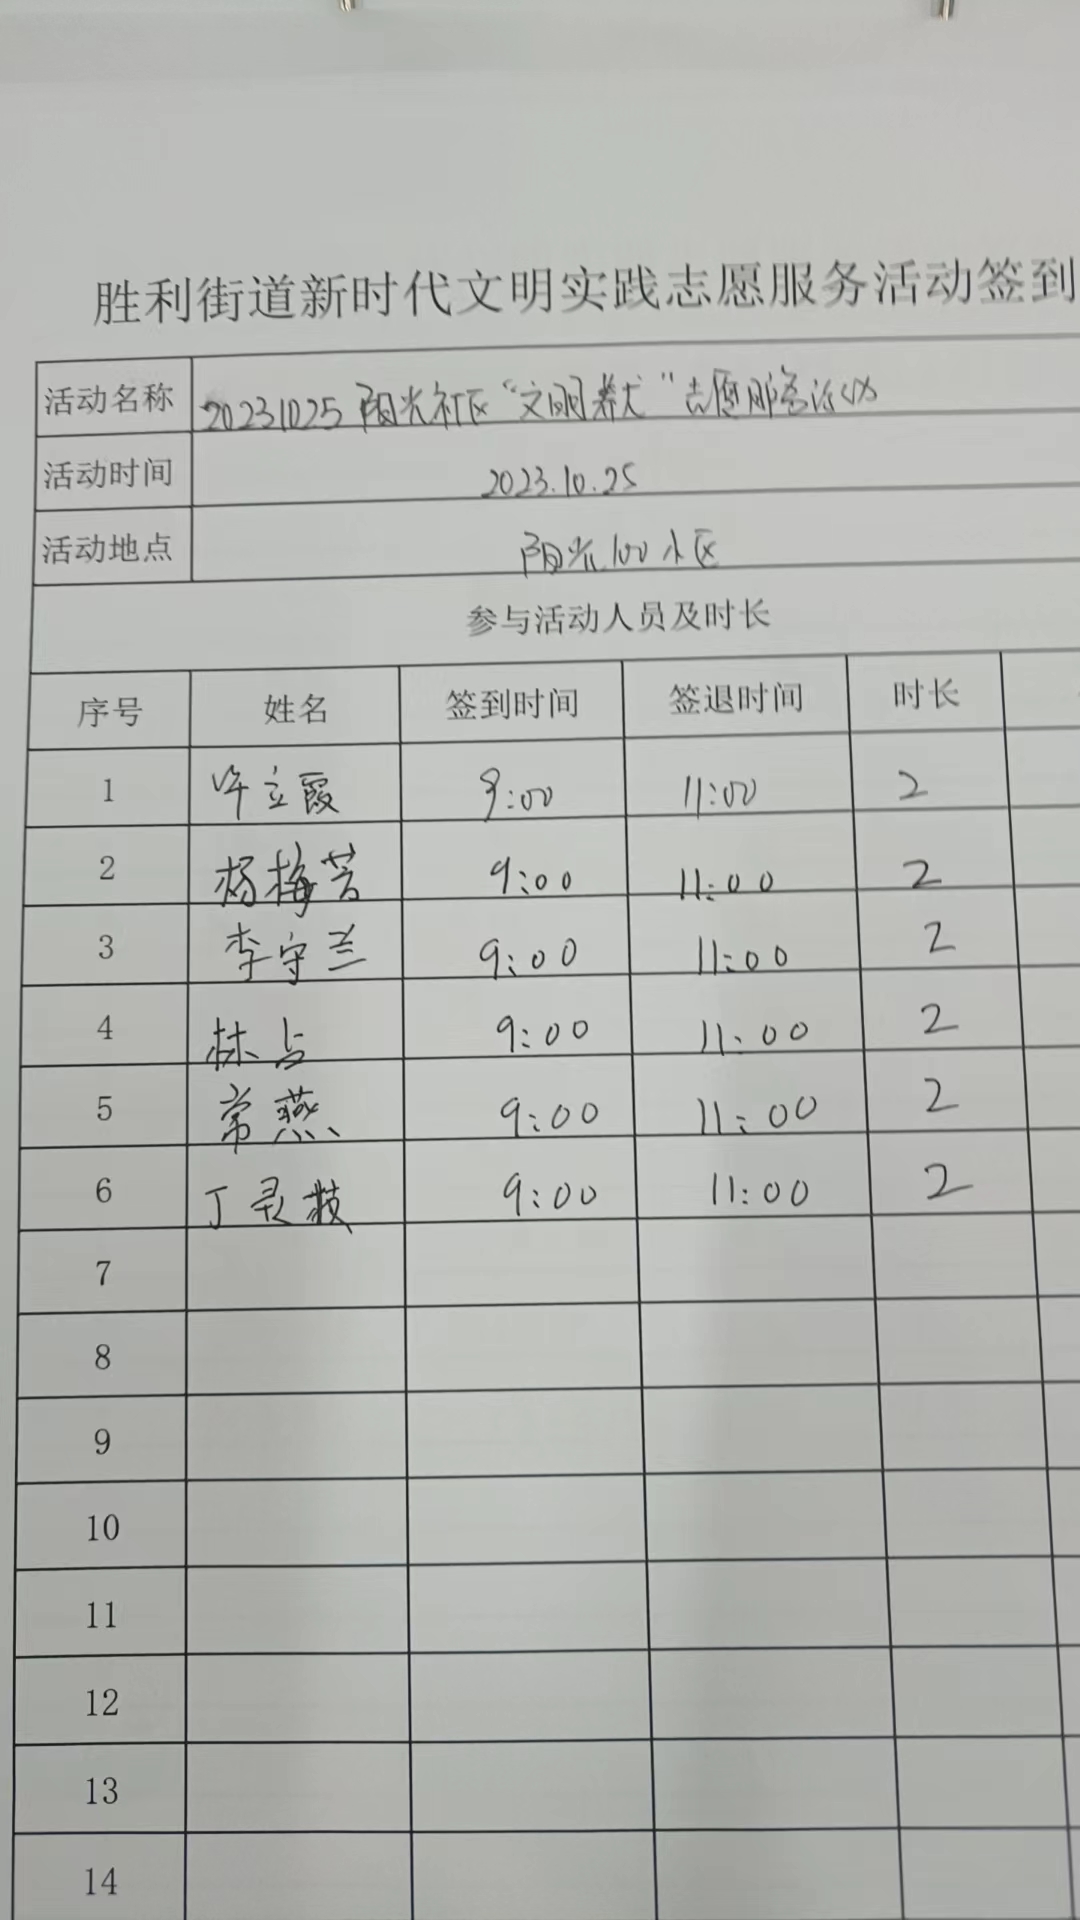 胜利街道新时代文明实践志愿服务活动签到
活动名称 20231025阳光社区“文明养犬”志愿服务活动
活动时间 2023.10.25
活动地点 阳光100小区
参与活动人员及时长
序号 姓名 签到时间 签退时间 时长
1 许立霞 9:00 11:00 2
2 杨梅芳 9:00 11:00 2
3 李守兰 9:00 11:00 2
4 林占 9:00 11:00 2
5 常燕 9:00 11:00 2
6 丁灵 9:00 11:00 2
7
8
9
10
11
12
13
14